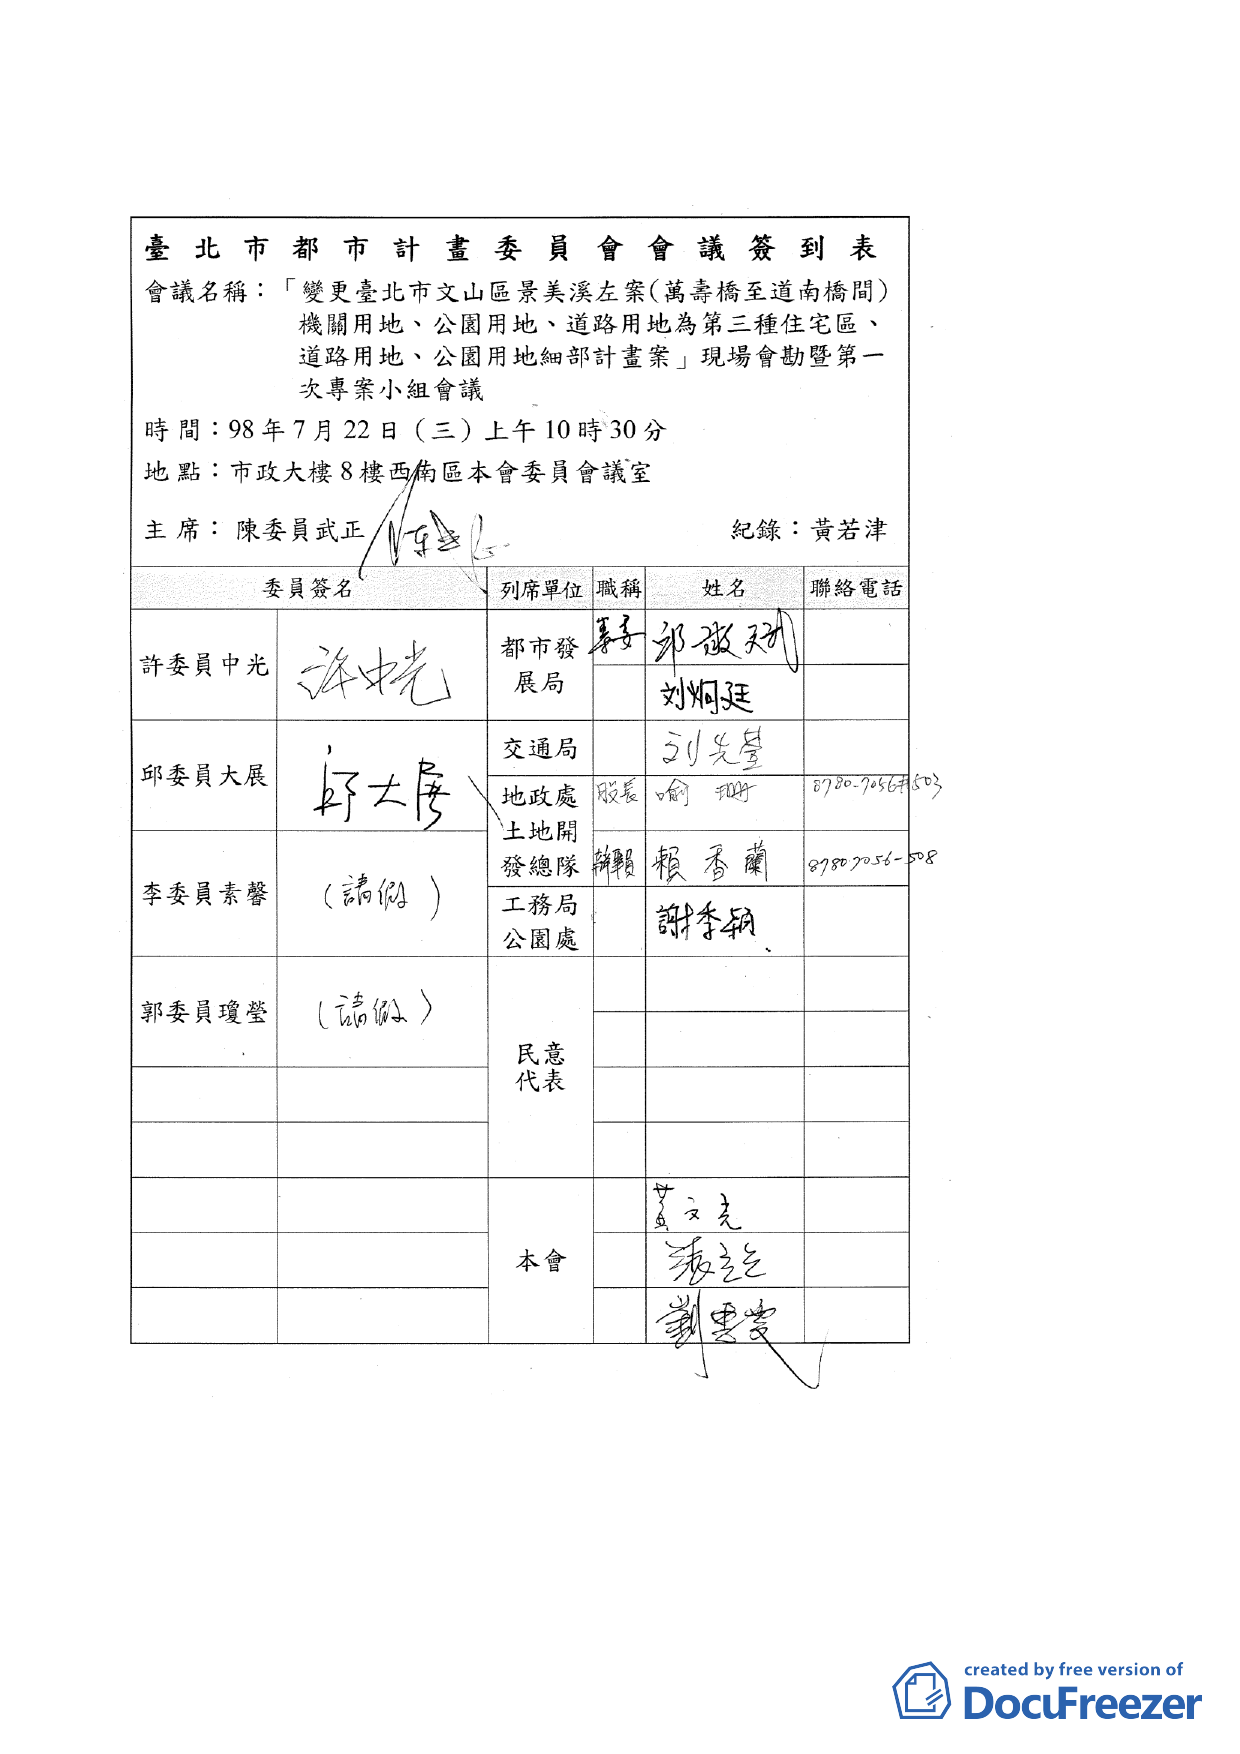 臺北市都市計畫委員會會議簽到表
會議名稱：「變更臺北市文山區景美溪左案(萬壽橋至道南橋間)
機關用地、公園用地、道路用地為第三種住宅區、
道路用地、公園用地細部計畫案」現場會勘暨第一
次專案小組會議
時間：98年7月22日（三）上午10時30分
地點：市政大樓8樓西南區本會委員會議室
主席：陳委員武正 紀錄：黃若津
委員簽名 列席單位 職稱 姓名 聯絡電話
許委員中光 許中光 都市發
展局 邱敬斌
刘炯廷
邱委員大展 邱大展 交通局
地政處
土地開
發總隊 股長 喻珊 8780-7056#503
賴香蘭 87807056-508
李委員素馨 (請假)
工務局
公園處 謝季穎
郭委員瓊瑩 (請假)
民意
代表
本會 黃文光
張立立
劉惠雯
created by free version of
DocuFreezer